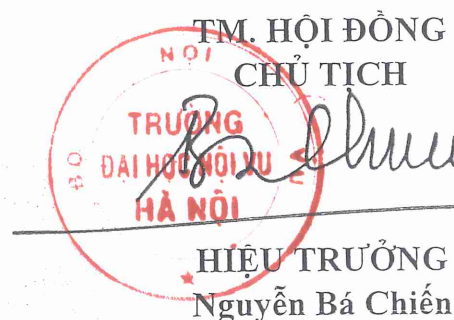 TM. HỘI ĐỒNG
CHỦ TỊCH
BỘ NỘI VỤ
TRƯỜNG
ĐẠI HỌC NỘI VỤ
HÀ NỘI
HIỆU TRƯỞNG
Nguyễn Bá Chiến